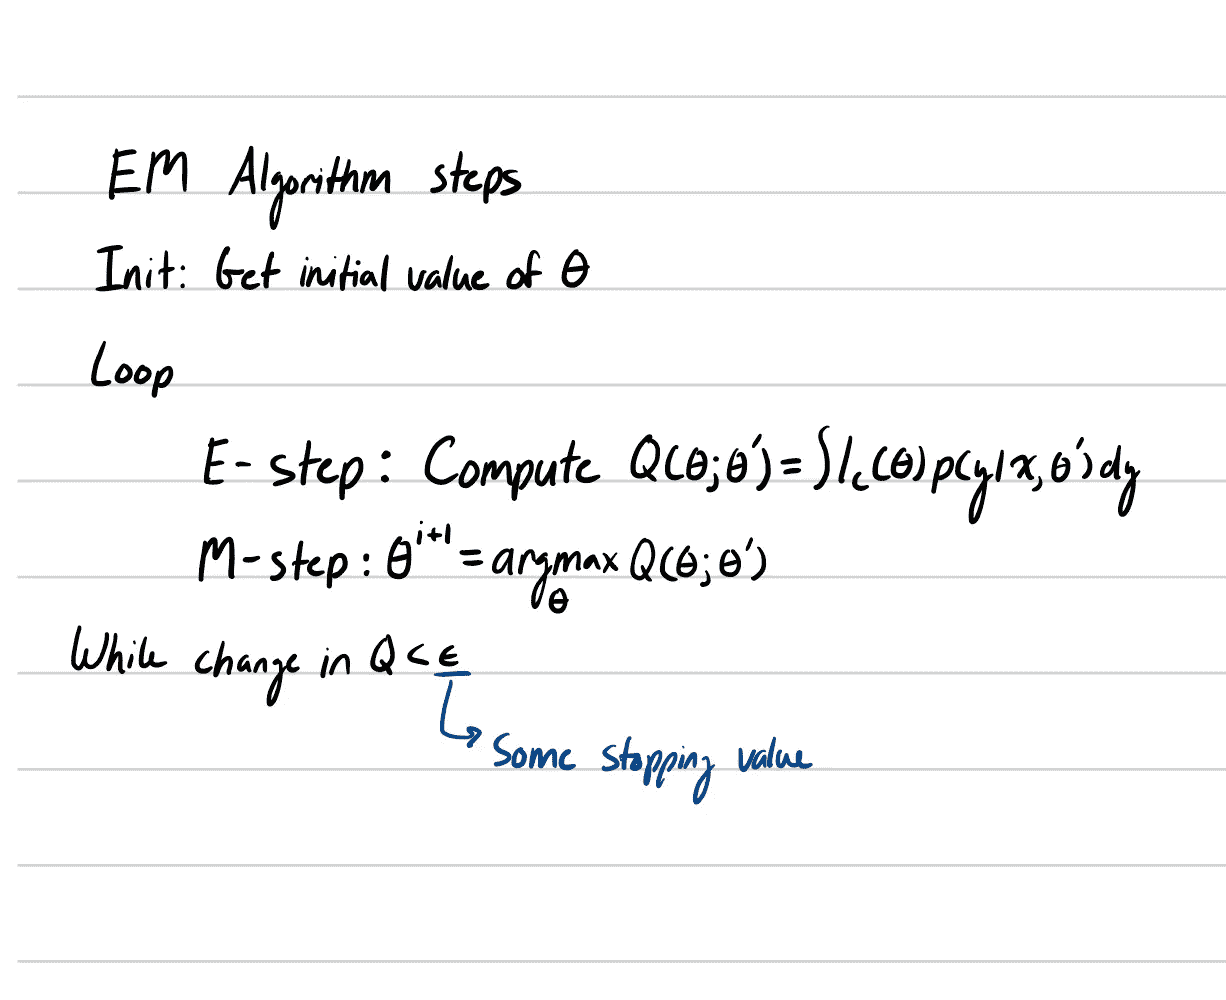 EM Algorithm steps
Init: Get initial value of θ
Loop
E-step: Compute Q(θ;θ′)=∫l_c(θ)p(y|x,θ′)dy
M-step: θ^{i+1}=argmax_θ Q(θ;θ′)
While change in Q<ϵ
Some stopping value